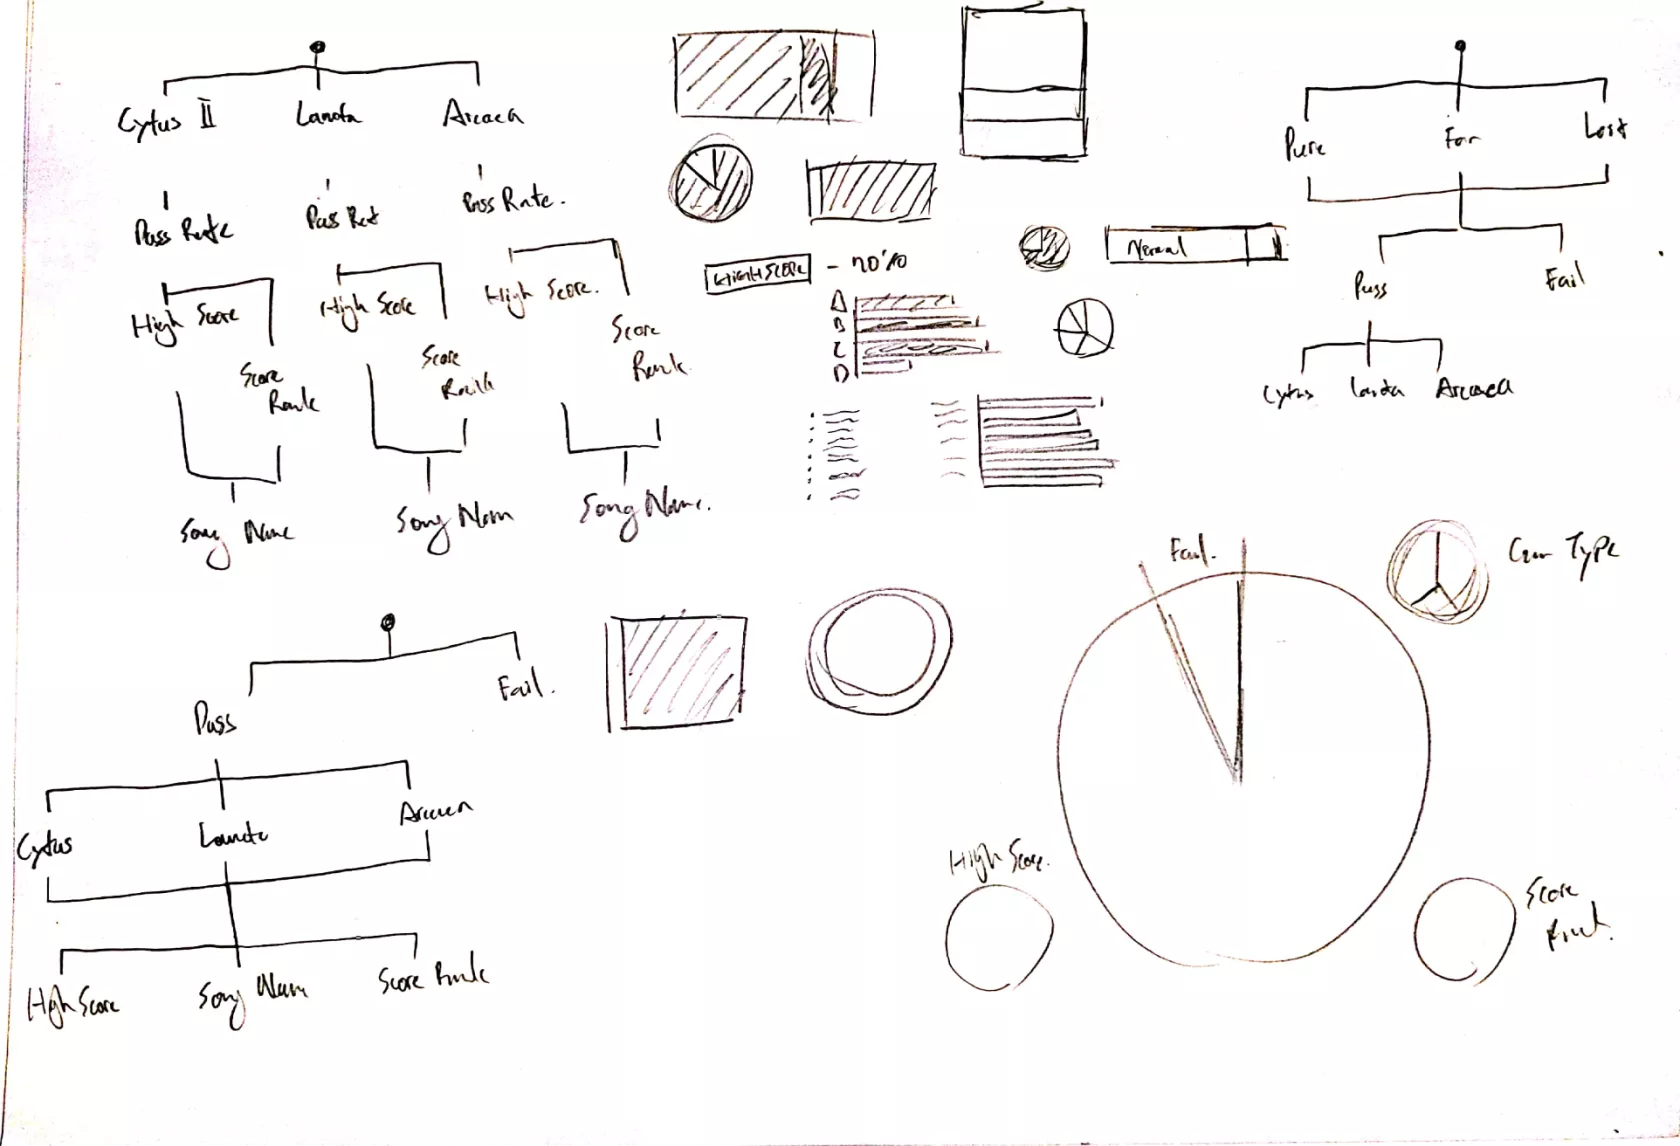 Cytus II
Lanota
Arcaea
Pass Rate
Pass Rat
Pass Rate.
High Score
High Score
High Score.
Score
Rank
Score
Rank
Score
Rank
Song Name
Song Nam
Song Name.
HIGH SCORE
A
B
C
D
Normal
Pure
Far
Lost
Pass
Fail
Cytus
Lanota
Arcaea
Pass
Fail.
Cytus
Lanota
Arcaea
High Score
Song Nam
Score Rank
Fail.
Type
High Score.
Score